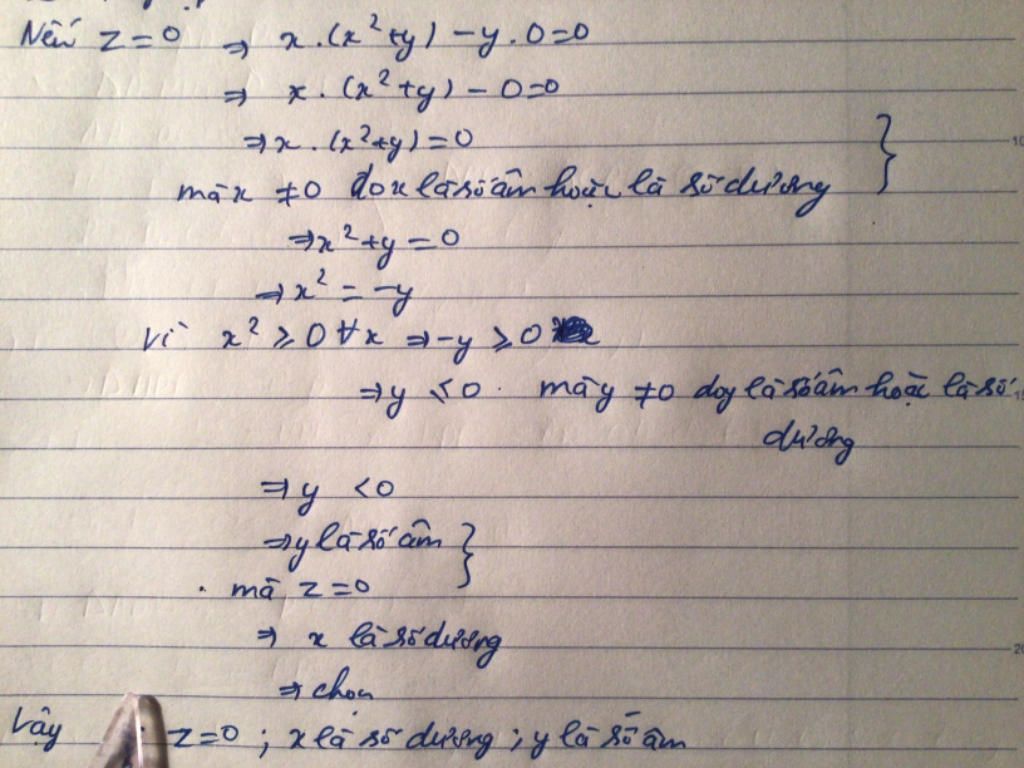 Nếu z = 0 ⇒ x.(x²+y) - y.0=0
⇒ x.(x²+y) - 0=0
⇒ x.(x²+y) = 0
mà x ≠0 do x là số âm hoặc là số dương
⇒ x²+y = 0
⇒ x² = -y
Vì x² ≥ 0 ∀x ⇒ -y ≥ 0
⇒ y ≤ 0. mà y ≠0 do y là số âm hoặc là số
dương
⇒ y <0
⇒ y là số âm
mà z = 0
⇒ x là số dương
⇒ chọn
Vậy z=0 ; x là số dương ; y là số âm